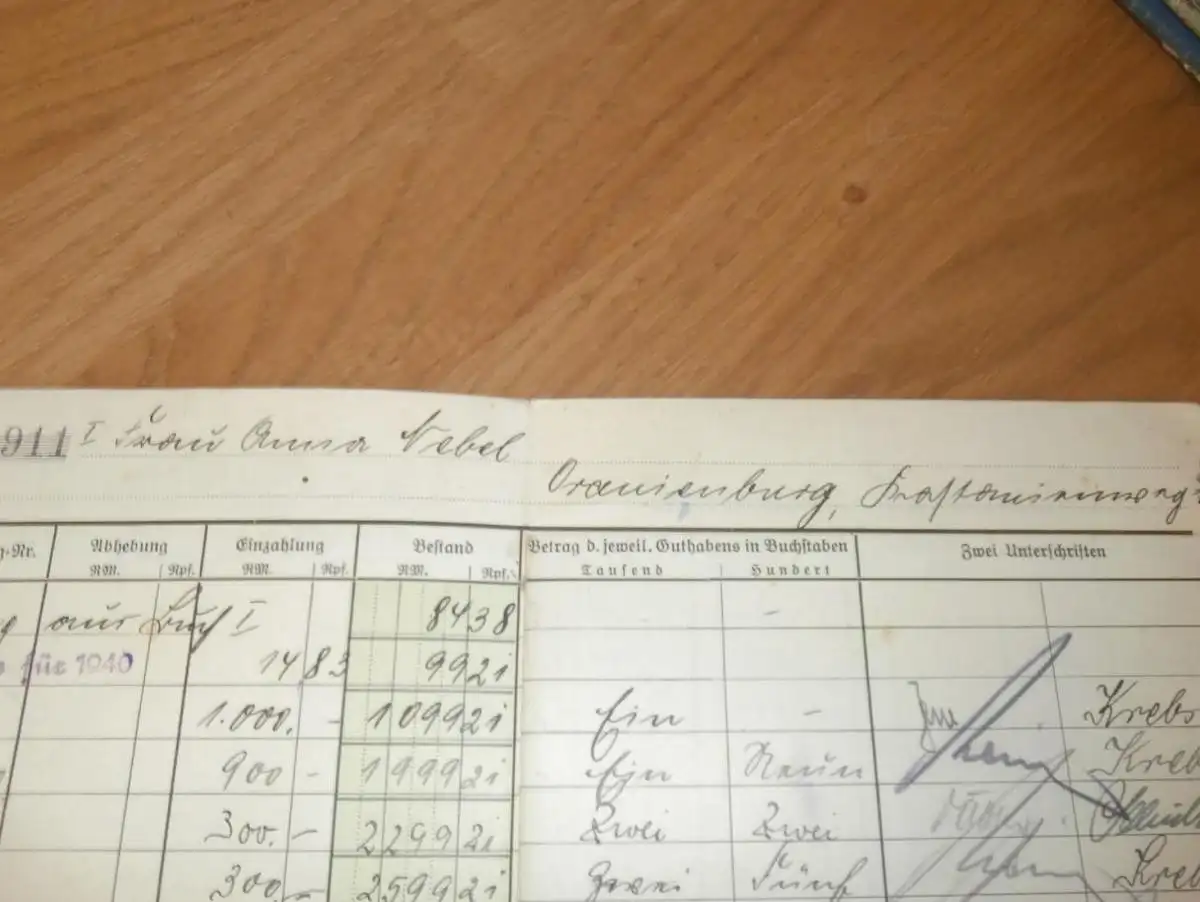 911 I Frau Anna Nebel
Oranienburg, Kastanienweg
g-Nr. Abhebung Einzahlung Bestand Betrag d. jeweil. Guthabens in Buchstaben Zwei Unterschriften
RM. Rpf. RM. Rpf. RM. Rpf. Tausend Hundert
g aus Buch I 84 38 -
für 1940 14,83 99 21
1.000. - 1099 21 Ein - Krebs
900 - 1999 21 Ein Neun Kreb
300. - 2299 21 Zwei Zwei
300. - 2599 21 Zwei Fünf Kreb